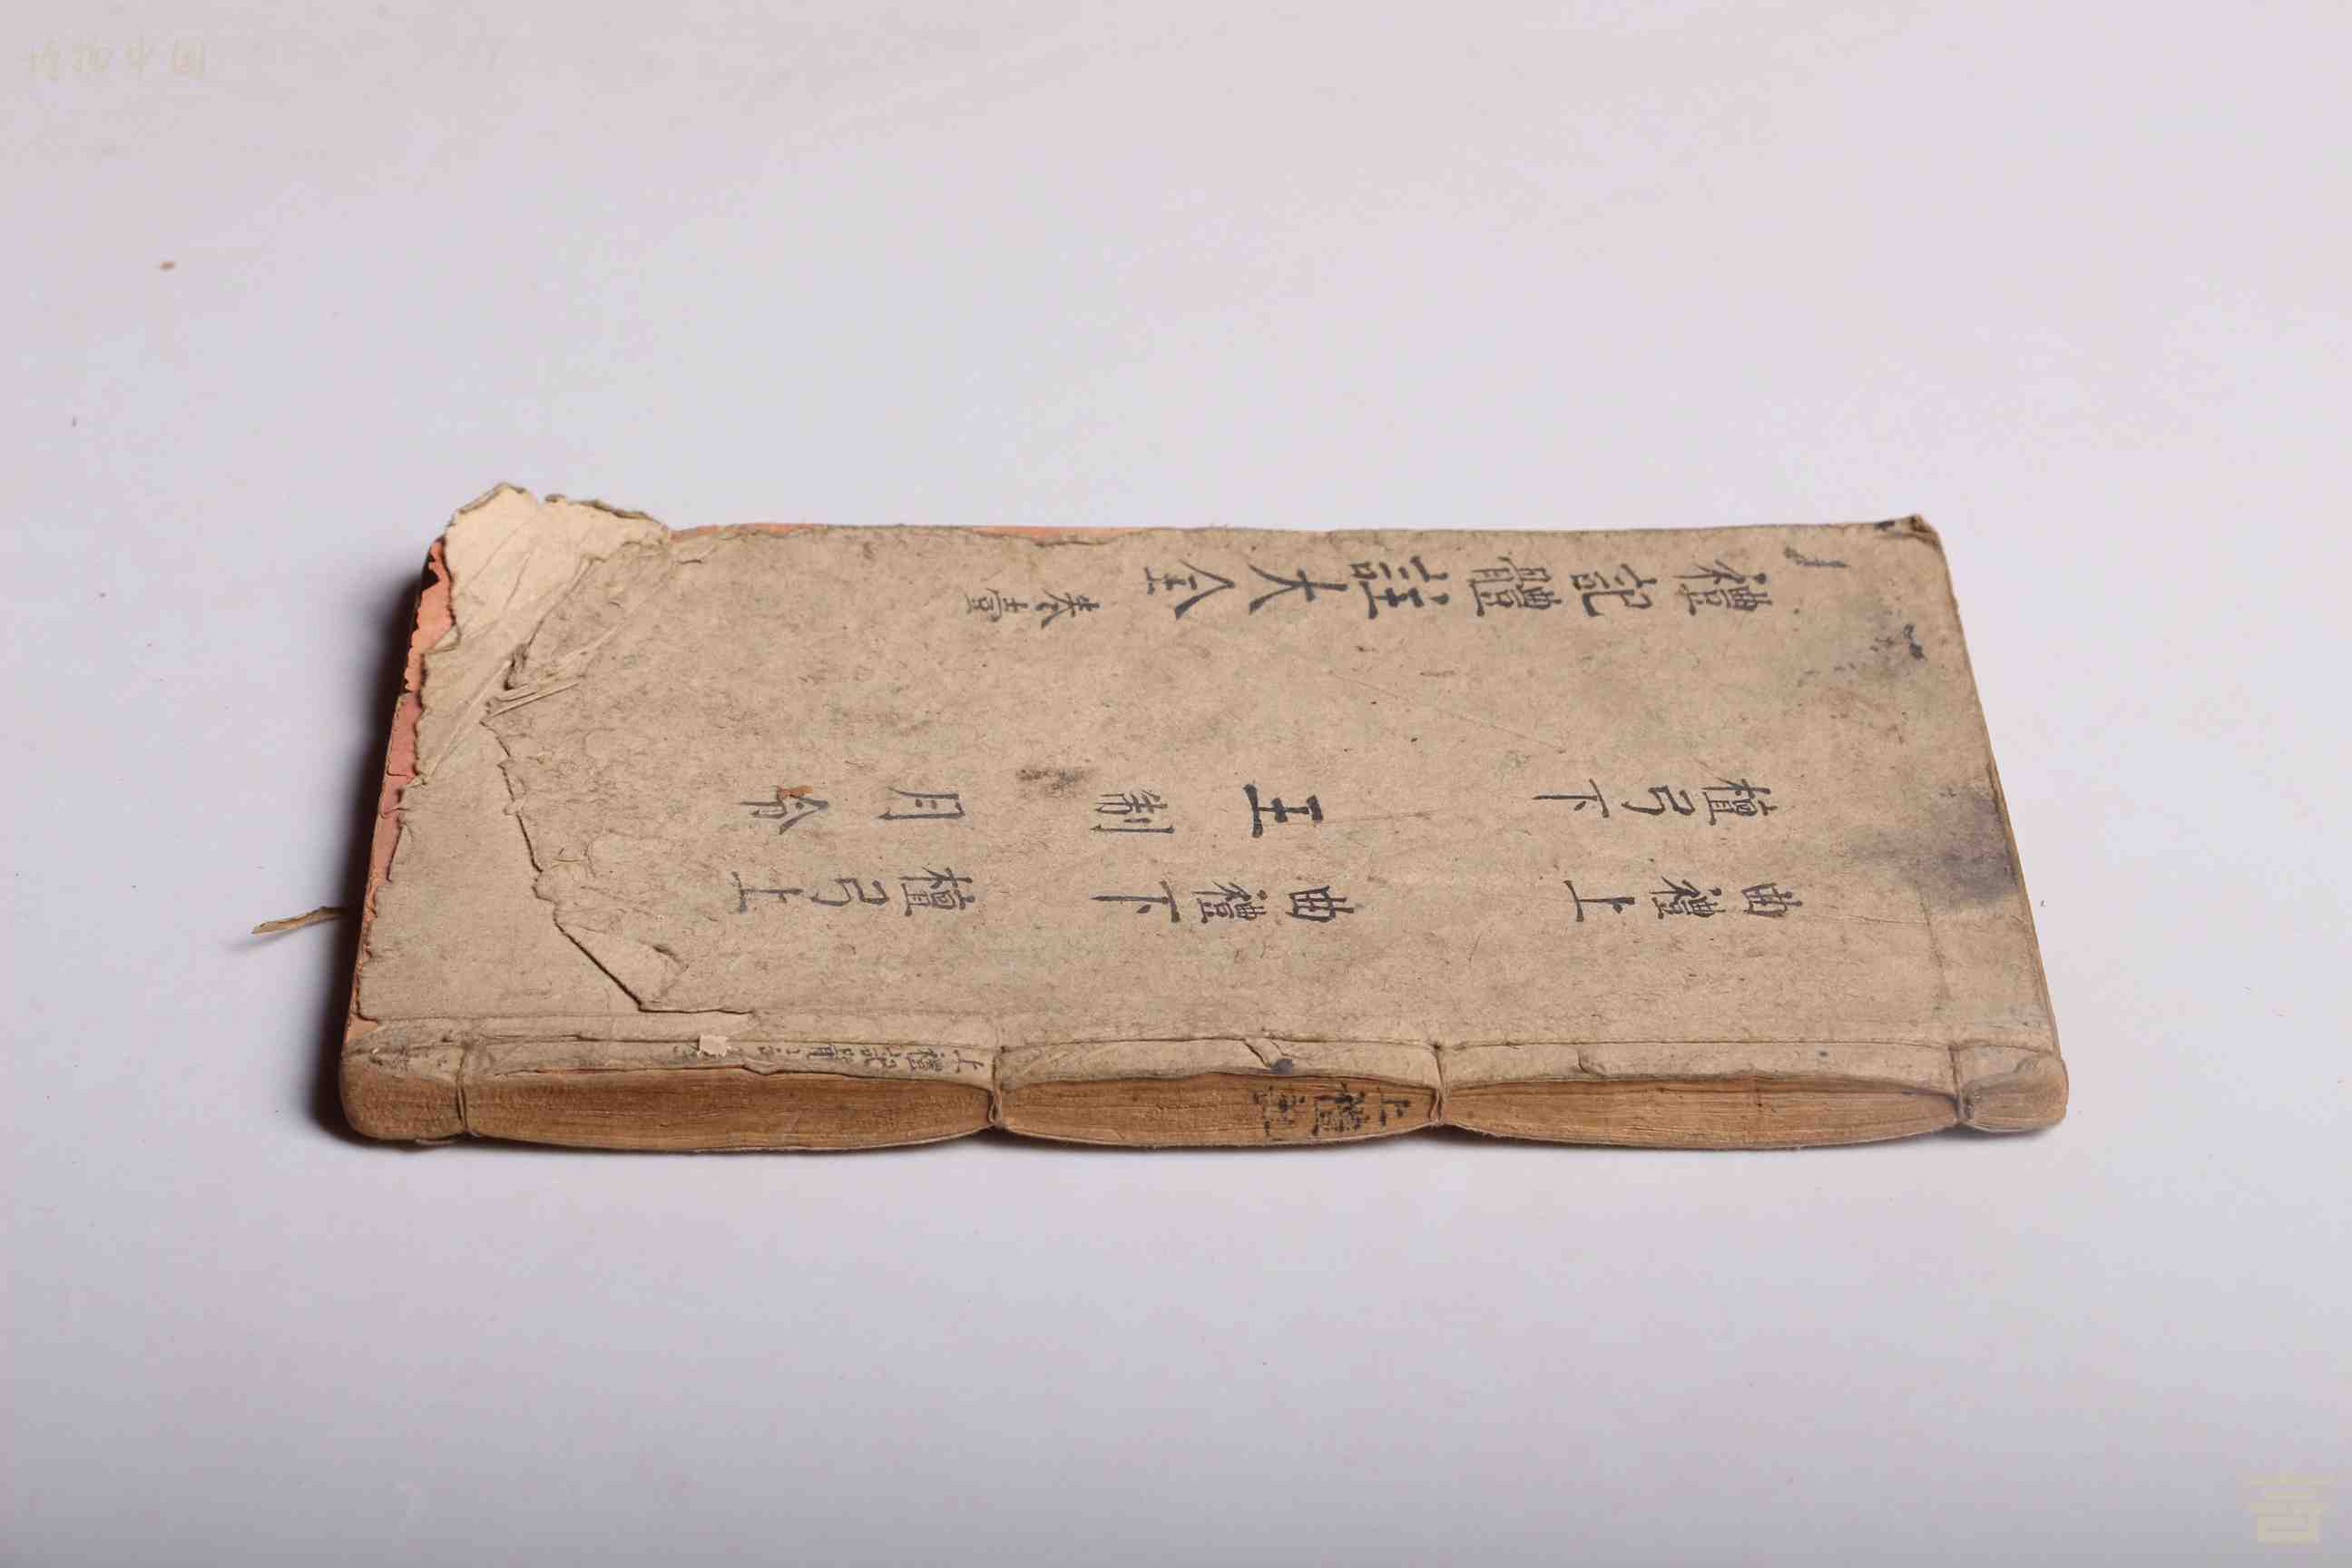 博物中国
上禮記
曲禮上 曲禮下 檀弓上
檀弓下 王制 月令
禮記體註大全 卷壹